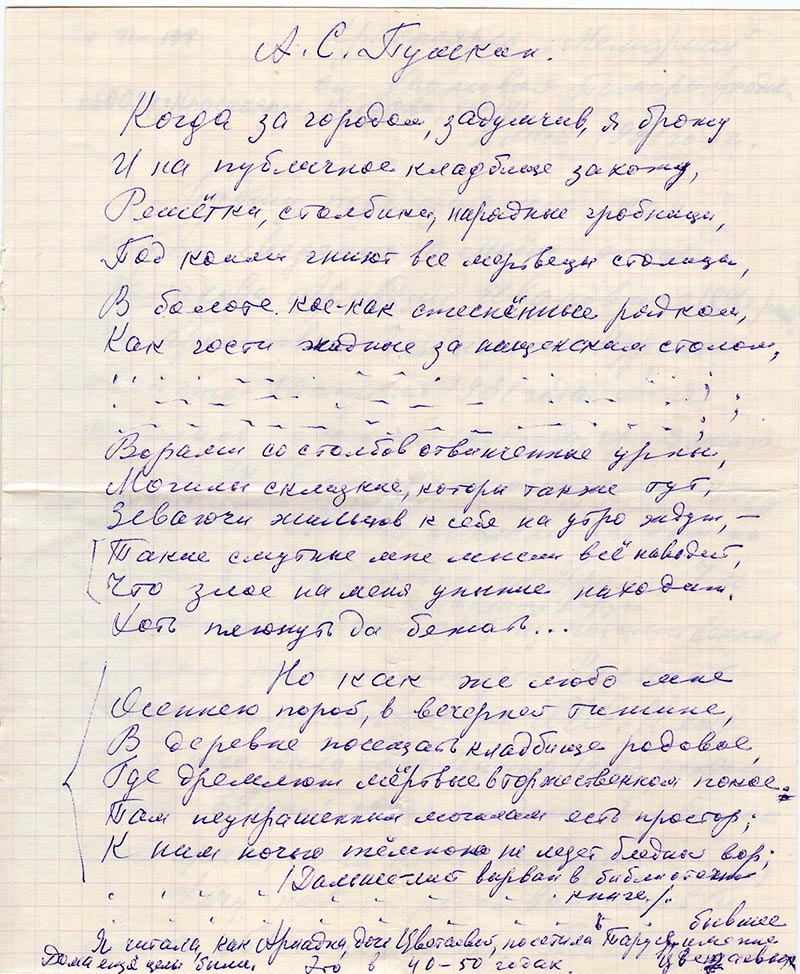 А. С. Пушкин.
Когда за городом, задумчив, я брожу
И на публичное кладбище захожу,
Решётки, столбики, нарядные гробницы,
Под коими гниют все мертвецы столицы,
В болоте кое-как стеснённые рядком,
Как гости жадные за нищенским столом,
Ворами со столбов отвинченные урны,
Могилы склизкие, которы также тут,
Зеваючи жильцов к себе на утро ждут, –
Такие смутные мне мысли всё наводит,
Что злое на меня уныние находит.
Хоть плюнуть да бежать...
Но как же любо мне
Осеннею порой, в вечерней тишине,
В деревне посещать кладбище родовое,
Где дремлют мёртвые в торжественном покое.
Там неукрашенным могилам есть простор;
К ним ночью тёмною не лезет бледный вор;
/Дальше лист вырван в библиотечн
книге/.
Я читала, как Ариадна, дочь Цветаевой, посетила Тарусу, бывшее
имение
Дома ещё целы были. Это в 40-50 годах. Цветаевых